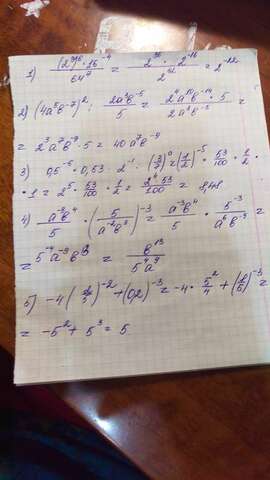 1) (2⁹)⁶ · 16⁻⁴ / 64⁷ = 2³⁶ · 2⁻¹⁶ / 2⁴² = 2⁻²²
2) (4a⁵b⁻⁷)² : 2a³b⁻⁵ / 5 = 2⁴a¹⁰b⁻¹⁴ · 5 / 2a³b⁻⁵ =
= 2³a⁷b⁻⁹ · 5 = 40a⁷b⁻⁹
3) 0,5⁻⁵ · 0,53 · 2⁻¹ · (3/7)⁰ = (1/2)⁻⁵ · 53/100 · 1/2 ·
· 1 = 2⁵ · 53/100 · 1/2 = 2⁴·53/100 = 8,48
4) a⁻³b⁴ / 5 · (5 / a⁻²b³)⁻³ = a⁻³b⁴ / 5 · 5⁻³ / a⁶b⁻⁹ =
= 5⁻⁴a⁻⁹b¹³ = b¹³ / 5⁴a⁹
5) -4(2/5)⁻² + (0,2)⁻³ = -4 · 5²/4 + (1/5)⁻³ =
= -5² + 5³ = 5